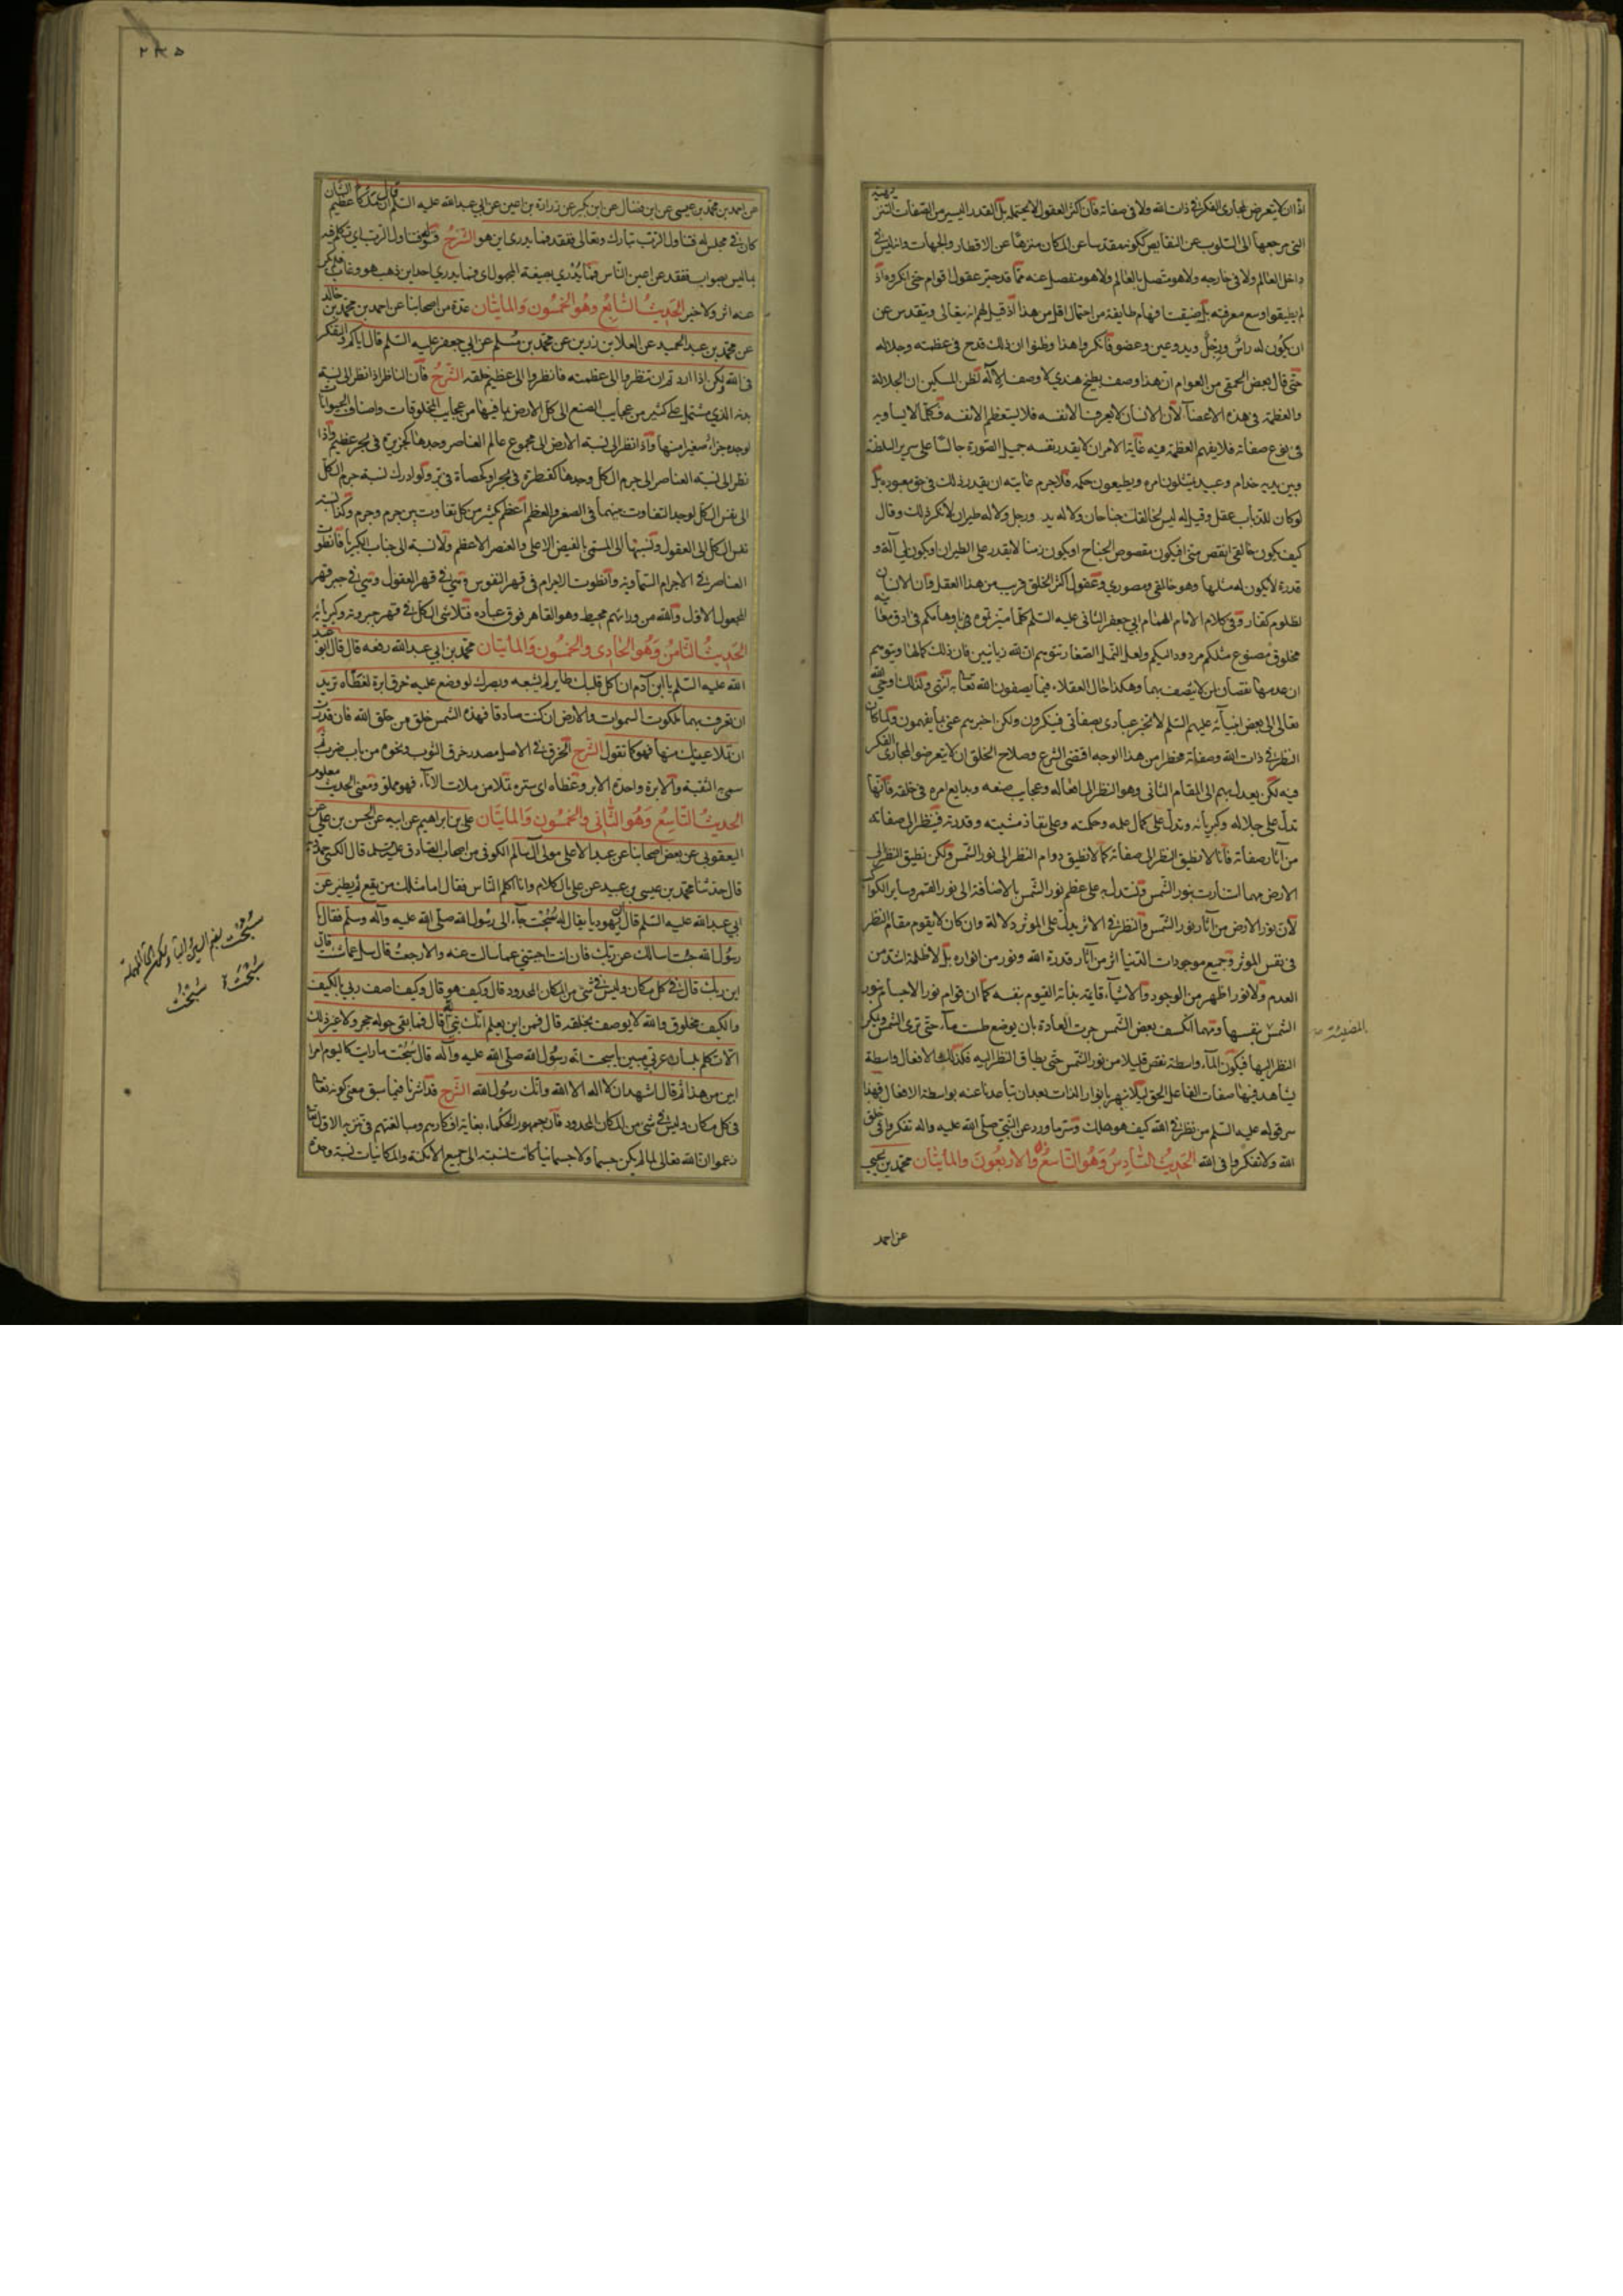 اذا ان لا يتعرض لمجارى الفكر فى ذات الله ولا فى صفاته فان اكثر العقول لا يحتمله بل القدر اليسير من الصفات التنزيهية
التى مرجعها الى السلوب عن النقايص ككونه مقدسا عن المكان منزها عن الاقطار والجهات وانه ليس فى
داخل العالم ولا فى خارجه ولا هو متصل بالعالم ولا هو منفصل عنه مما قد حير عقول اقوام حتى انكروه اذ
لم يطيقوا وسع معرفته بل ضيقت افهام طايفة من احتمال اقل من هذا اذ قيل لهم انه يتعالى ويتقدس عن
ان يكون له راس ورجل ويد وعين وعضو فانكروا هذا وظنوا ان ذلك قدح فى عظمته وجلاله
حتى قال بعض الحمقى من العوام ان هذا وصف بطيخ هندي لا وصف الاله لظن المسكين ان الجلالة
والعظمة فى هذه الاعضآء لان الانسان لا يعرف الا نفسه فلا يستعظم الا نفسه فكلما لا يساويه
فى نوع صفاته فلا يفهم العظمة فيه غاية الامر ان لا يقدر نفسه جميل الصورة جالسا على سرير السلطنة
وبين يديه خدام وعبيد يمتثلون امره ويطيعون حكمه فلا جرم غايته ان يقدر ذلك فى حق معبوده بل
لو كان للذباب عقل وقيل له ليس لخالقك جناحان ولا له يد ورجل ولا له طيران لانكر ذلك وقال
كيف يكون خالقى انقص منى افيكون مقصوص الجناح او يكون زمنا لا يقدر على الطيران او يكون لى آلة و
قدرة لا يكون له مثلها وهو خالقى ومصورى وعقول اكثر الخلق قريب من هذا العقل وان الانسان
لظلوم كفار وفى كلام الامام الهمام ابى جعفر الثانى عليه السلم كلما ميزتموه باوهامكم فى ادق معانيه
مخلوق مصنوع مثلكم مردود اليكم ولعل النمل الصغار تتوهم ان لله زبانيين فان ذلك كمالها ويتوهم
ان عدمها نقصان لمن لا يتصف بهما وهكذا حال العقلاء فيما يصفون الله تعالى به انتهى ولذلك اوحى الله
تعالى الى بعض انبيائه عليهم السلم لا تخبر عبادى بصفاتى فينكرون ولكن اخبرهم عنى بما يفهمون ولما كان
النظر فى ذات الله وصفاته مخطرا من هذا الوجه اقتضى الشرع وصلاح الخلق ان لا يتعرضوا لمجارى الفكر
فيه لكن يعدل بهم الى المقام الثانى وهو النظر الى افعاله وعجايب صنعه وبدايع امره فى خلقه فانها
تدل على جلاله وكبريائه وتدل على كمال علمه وحكمته وعلى نفاذ مشيته وقدرته فينظر الى صفاته
من آثار صفاته فانا لا نطيق النظر الى صفاته كما لا نطيق دوام النظر الى نور الشمس ولكن نطيق النظر الى
الارض مهما استنارت بنور الشمس ونستدل به على عظم نور الشمس بالاضافة الى نور القمر وساير الكواكب
لان نور الارض من آثار نور الشمس والنظر فى الاثر يدل على الموثر دلالة وان كان لا يقوم مقام النظر
فى نفس الموثر وجميع موجودات الدنيا اثر من آثار قدرة الله ونور من انواره بل لا ظلمة اشد من
العدم ولا نور اظهر من الوجود والاشياء قايمة بذاته القيوم بنفسه كما ان قوام نور الاجسام بنور
الشمس بنفسها ومهما انكسف بعض الشمس جرت العادة بان يوضع طست مآء حتى ترى الشمس ويمكن
النظر اليها فيكون المآء واسطة نقص قليلا من نور الشمس حتى يطاق النظر اليه فكذلك الافعال واسطة
يشاهد فيها صفات الفاعل الحق ليلا نبهر بانوار الذات بعد ان تباعدنا عنه بواسطة الافعال فهذا
سر قوله عليه السلم من نظر فى الله كيف هو هلك وسر ما ورد عن النبى صلى الله عليه واله تفكروا فى خلق
الله ولا تفكروا فى الله الحديث السادس وهو التاسع والاربعون والمائتان محمد بن يحيى
المضيئة
عن احمد
٢٣٥
عن احمد بن محمد بن عيسى عن ابن فضال عن ابن بكير عن زرارة بن اعين عن ابى عبد الله عليه السلم قال ان ملكا عظيم الشان
كان فى مجلس له فتناول الرب تبارك وتعالى ففقد فما يدرى اين هو الشرح قوله فتناول الرب اى تكلم فيه
بما ليس بصواب ففقد عن اعين الناس فما يدرى بصيغة المجهول اى فما يدرى احد اين ذهب هو وغاب فلم يكن
عنه اثر ولا خبر الحديث السابع وهو الخمسون والمائتان عدة من اصحابنا عن احمد بن محمد بن خالد
عن محمد بن عبد الحميد عن العلا بن رزين عن محمد بن مسلم عن ابى جعفر عليه السلم قال اياكم والتفكر
فى الله ولكن اذا اردتم ان تنظروا الى عظمته فانظروا الى عظيم خلقه الشرح فان الناظر اذا نظر الى نسبة
بدنه الذى مشتمل على كثير من عجايب الصنع الى كل الارض بما فيها من عجايب المخلوقات واصناف الحيوانات
لوجده جزاء صغيرا منها واذا نظر الى نسبة الارض الى مجموع عالم العناصر وجدها كجزيرة فى بحر عظيم واذا
نظر الى نسبة العناصر الى جرم الكل وجدها كقطرة فى بحر او كحصاة فى تيه ولو ادرك نسبة جرم الكل
الى نفس الكل لوجد التفاوت بينهما فى الصغر والعظم اعظم بكثير من كل تفاوت بين جرم وجرم وكذا نسبة
نفس الكل الى العقول ونسبتها الى المسمى بالفيض الاعلى والعنصر الاعظم ولا نسبة الى جناب الكبرياء فانطوت
العناصر فى الاجرام السماوية وانطوت الاجرام فى قهر النفوس وهى فى قهر العقول وهى فى جبر قهر
المجعول الاول والله من ورائهم محيط وهو القاهر فوق عباده فتلاشى الكل فى قهر جبروته وكبريائه
الحديث الثامن وهو الحادى والخمسون والمائتان محمد بن ابى عبد الله رفعه قال قال ابو عبد
الله عليه السلم يا ابن آدم ان اكل قلبك طاير لم يشبعه وبصرك لو وضع عليه خرق ابرة لغطاه تريد
ان تعرف بهما ملكوت السموات والارض ان كنت صادقا فهذه الشمس خلق من خلق الله فان قدرت
ان تملأ عينيك منها فهو كما تقول الشرح الخرق فى الاصل مصدر خرق الثوب ونحوه من باب ضرب ثم
سمى به الثقبة والابرة واحدة الابر وغطاه اى ستره تملا من ملات الاناء فهو مملو ومعنى الحديث معلوم
الحديث التاسع وهو الثانى والخمسون والمائتان على بن ابراهيم عن ابيه عن الحسن بن على عن
اليعقوبى عن بعض اصحابنا عن عبد الاعلى مولى آل سام الكوفى من اصحاب الصادق عليه السلم قال الكشى حمدويه
قال حدثنا محمد بن عيسى بن عبيد عن على بن اسد بالكلام وانا اكلم الناس فقال اما مثلك من يقع ثم يطير عن
ابى عبد الله عليه السلم قال ان يهوديا يقال له سبخت جآء الى رسول الله صلى الله عليه وآله وسلم فقال يا
رسول الله جئت اسالك عن ربك فان انت اجبتنى عما اسالك عنه والا رجعت قال سل عما شئت قال
اين ربك قال فى كل مكان وليس فى شئ من المكان المحدود قال وكيف هو قال وكيف اصف ربى بالكيف
والكيف مخلوق والله لا يوصف بخلقه قال فمن اين يعلم انك نبى الله قال فما بقى حوله حجر ولا غير ذلك
الا تكلم بلسان عربى مبين يا سبخت انه رسول الله صلى الله عليه وآله قال سبخت ما رايت كاليوم امرا
ابين من هذا ثم قال اشهد ان لا اله الا الله وانك رسول الله الشرح قد اشرنا فيما سبق معنى كونه تعالى
فى كل مكان وليس فى شئ من المكان المحدود فان جمهور الحكماء بغاية افكارهم ومبالغتهم فى تنزيه الاول تعالى
زعموا ان الله تعالى لما لم يكن جسما ولا جسمانيا كانت نسبته الى جميع الامكنة والمكانيات نسبة واحدة
سبخت بضم السين
سبخت
سبخت